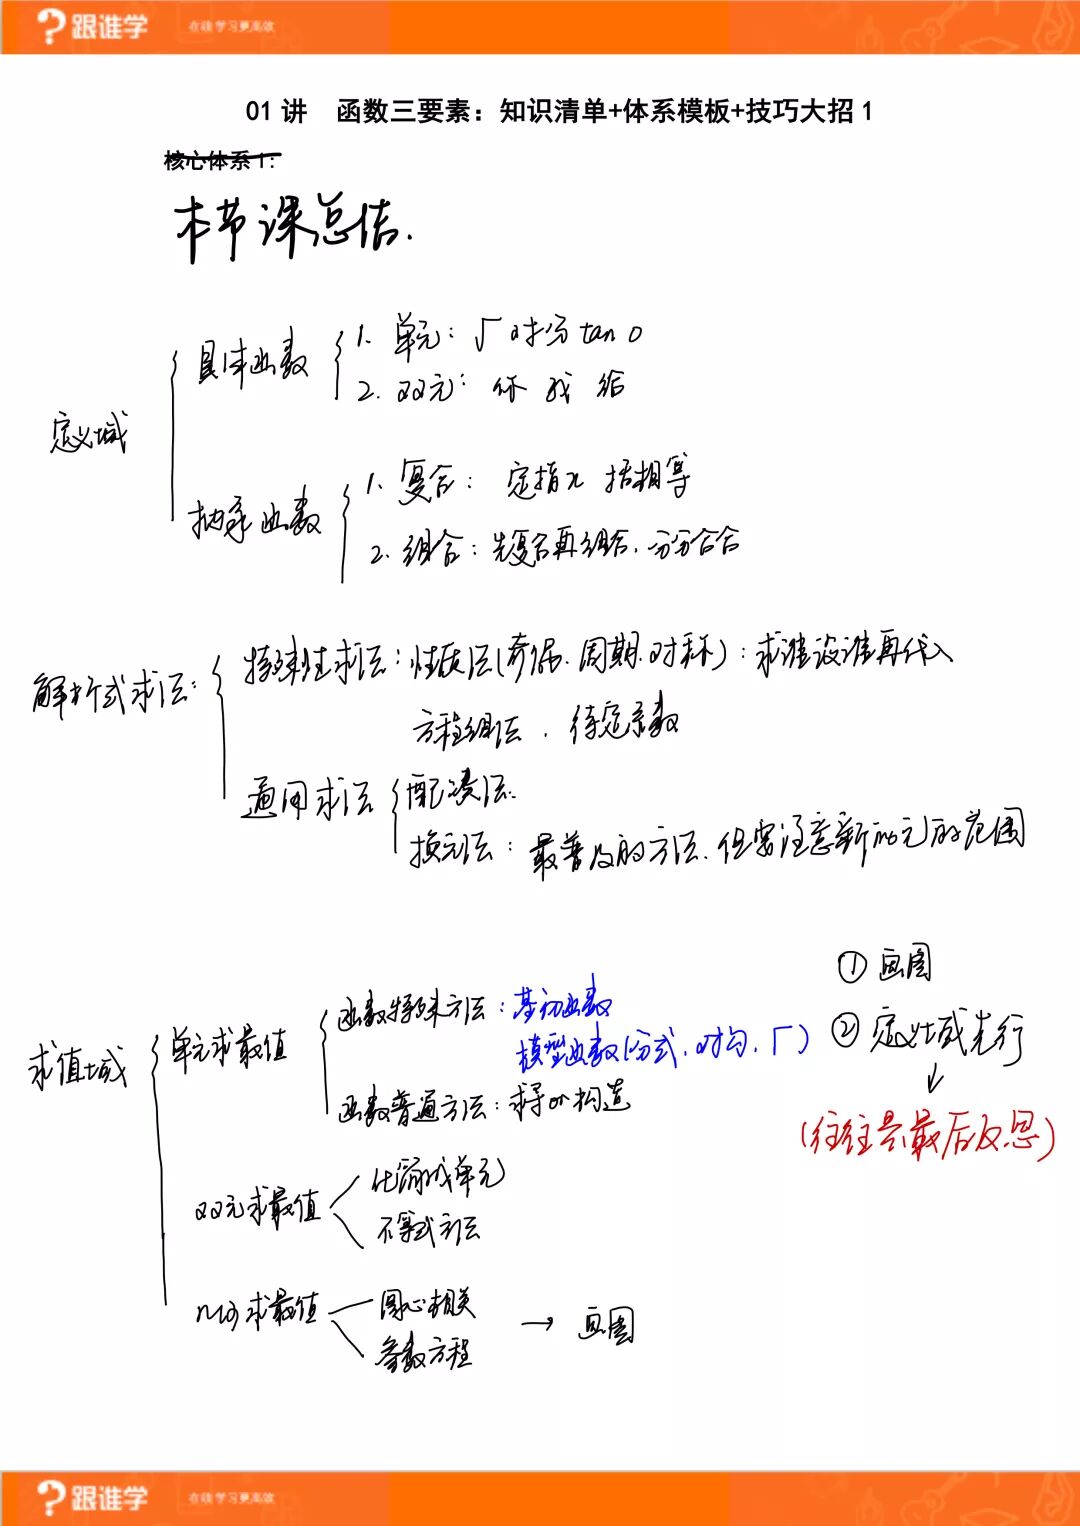 跟谁学 在线学习更高效
01 讲 函数三要素：知识清单+体系模板+技巧大招 1
核心体系 1：
本节课总结.
定义域
具体函数
1. 单元：√ 对分 tan 0
2. 双元：你 我 给
抽象函数
1. 复合：定指x 括相等
2. 组合：先复合再组合. 分分合合
解析式求法：
特殊性求法：性质法(奇偶. 周期. 对称)：求谁设谁再代入
方程组法. 待定系数
通用求法
配凑法.
换元法：最普及的方法. 但要注意新的元的范围
求值域
单元求最值
函数特殊方法：基初函数
模型函数(分式. 对勾. √)
函数普通方法：求导or构造
① 画图
② 定义域先行
↓
(往往是最后反思)
双元求最值
化简成单元
不等式方法
求最值
圆心相关
参数方程
→ 画图
跟谁学 在线学习更高效